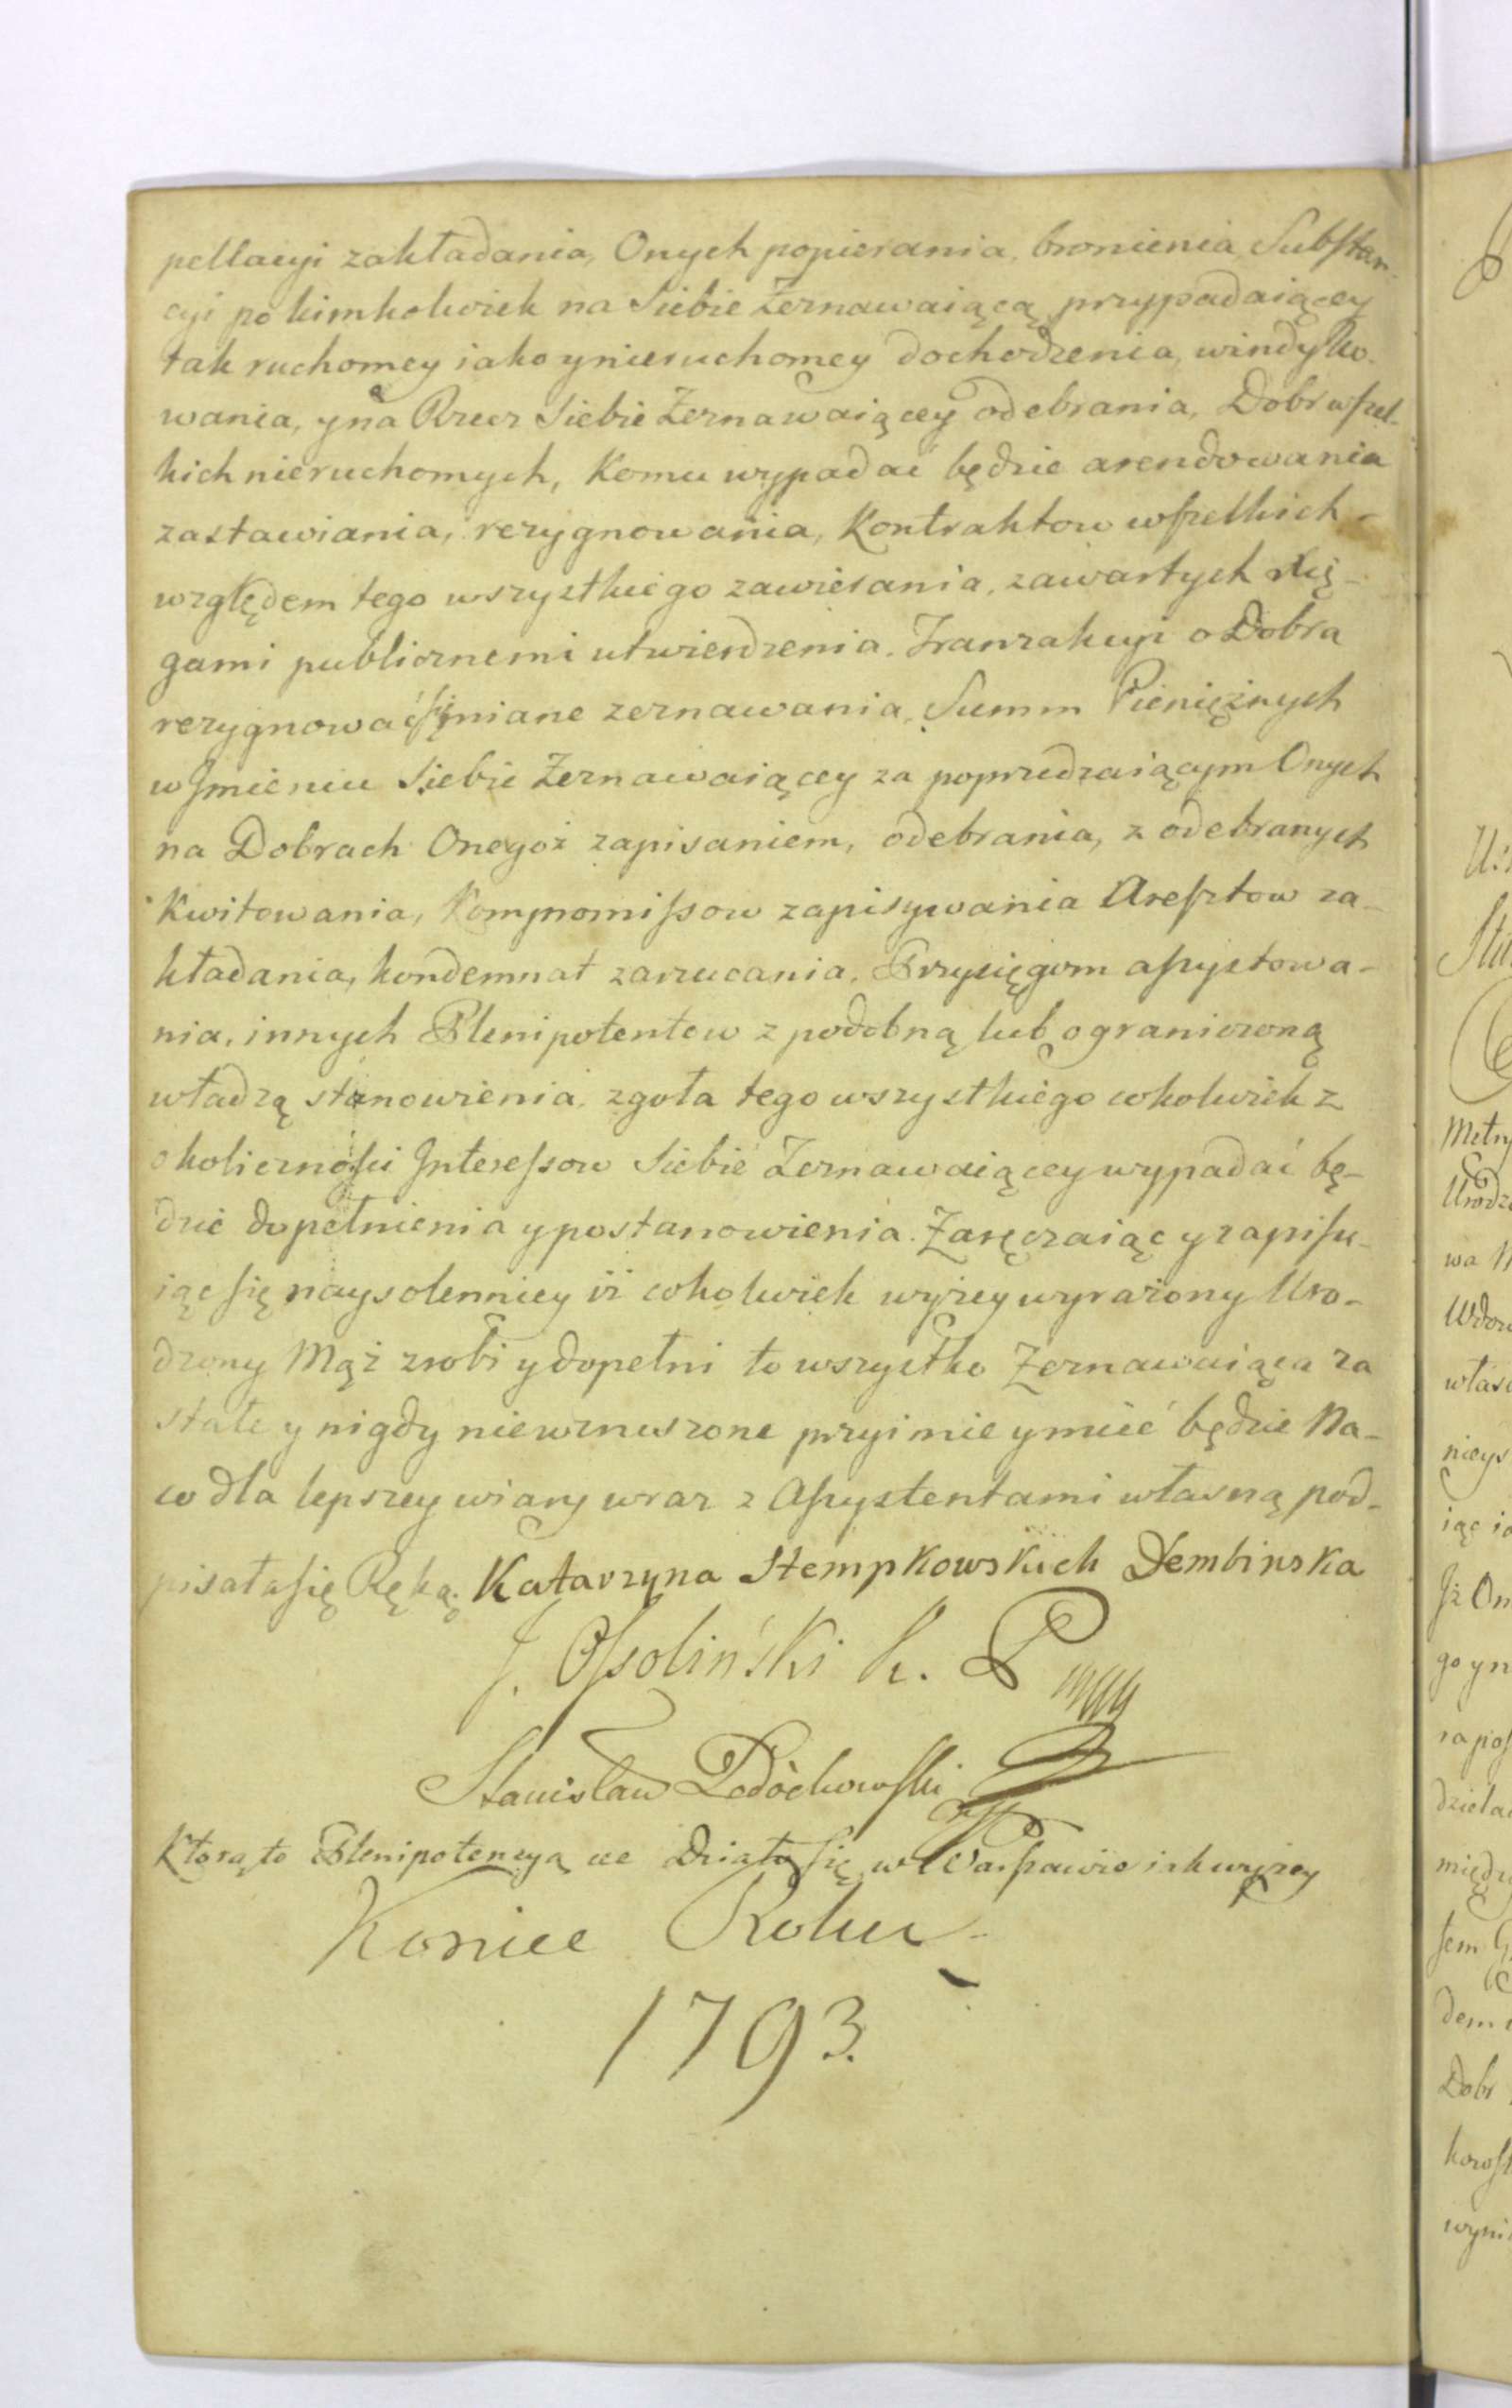 pellacyi zakładania, Onych popierania, bronienia, Substan-
cyi po kimkolwiek na Siebie Zeznawaiącą przypadaiącey
tak ruchomey iako y nieruchomey dochodzenia, windyko-
wania, y na Rzecz Siebie Zeznawaiącey odebrania, Dobr wszel-
kich nieruchomych, Komu wypadać będzie arendowania
zastawiania, rezygnowania, Kontraktow wszelkich
względem tego wszystkiego zawierania, zawartych Xię-
gami publicznemi utwierdzenia. Tranzakcyi o Dobra
rezygnować się miane zeznawania, Summ Pieniężnych
w Jmieniu Siebie Zeznawaiącey za poprzedzaiącym Onych
na Dobrach Onegoż zapisaniem, odebrania, z odebranych
Kwitowania, Kompromissow zapisywania Aresztow za-
kładania, kondemnat zarzucania. Przysięgom assystowa-
nia, innych Plenipotentow z podobną lub ograniczoną
władzą stanowienia, zgoła tego wszystkiego cokolwiek z
okoliczności Jnteressow Siebie Zeznawaiącey wypadać bę-
dzie dopełnienia y postanowienia. Zaręczaiąc y zapisu-
iąc się naysolenniey iż cokolwiek wyżey wyrażony Uro-
dzony Mąż zrobi y dopełni to wszystko Zeznawaiąca za
stałe y nigdy niewzruszone przyimie y mieć będzie Na-
co dla lepszey wiary wraz z Assystentami własną pod-
pisała się Ręką. Katarzyna Stempkowskich Dembinska
J. Ossoliński
Stanisław Lodòchowski
Ktorą to Plenipotencyą Działo się w Warszawie iak wyżey
Koniec Roku
1793.